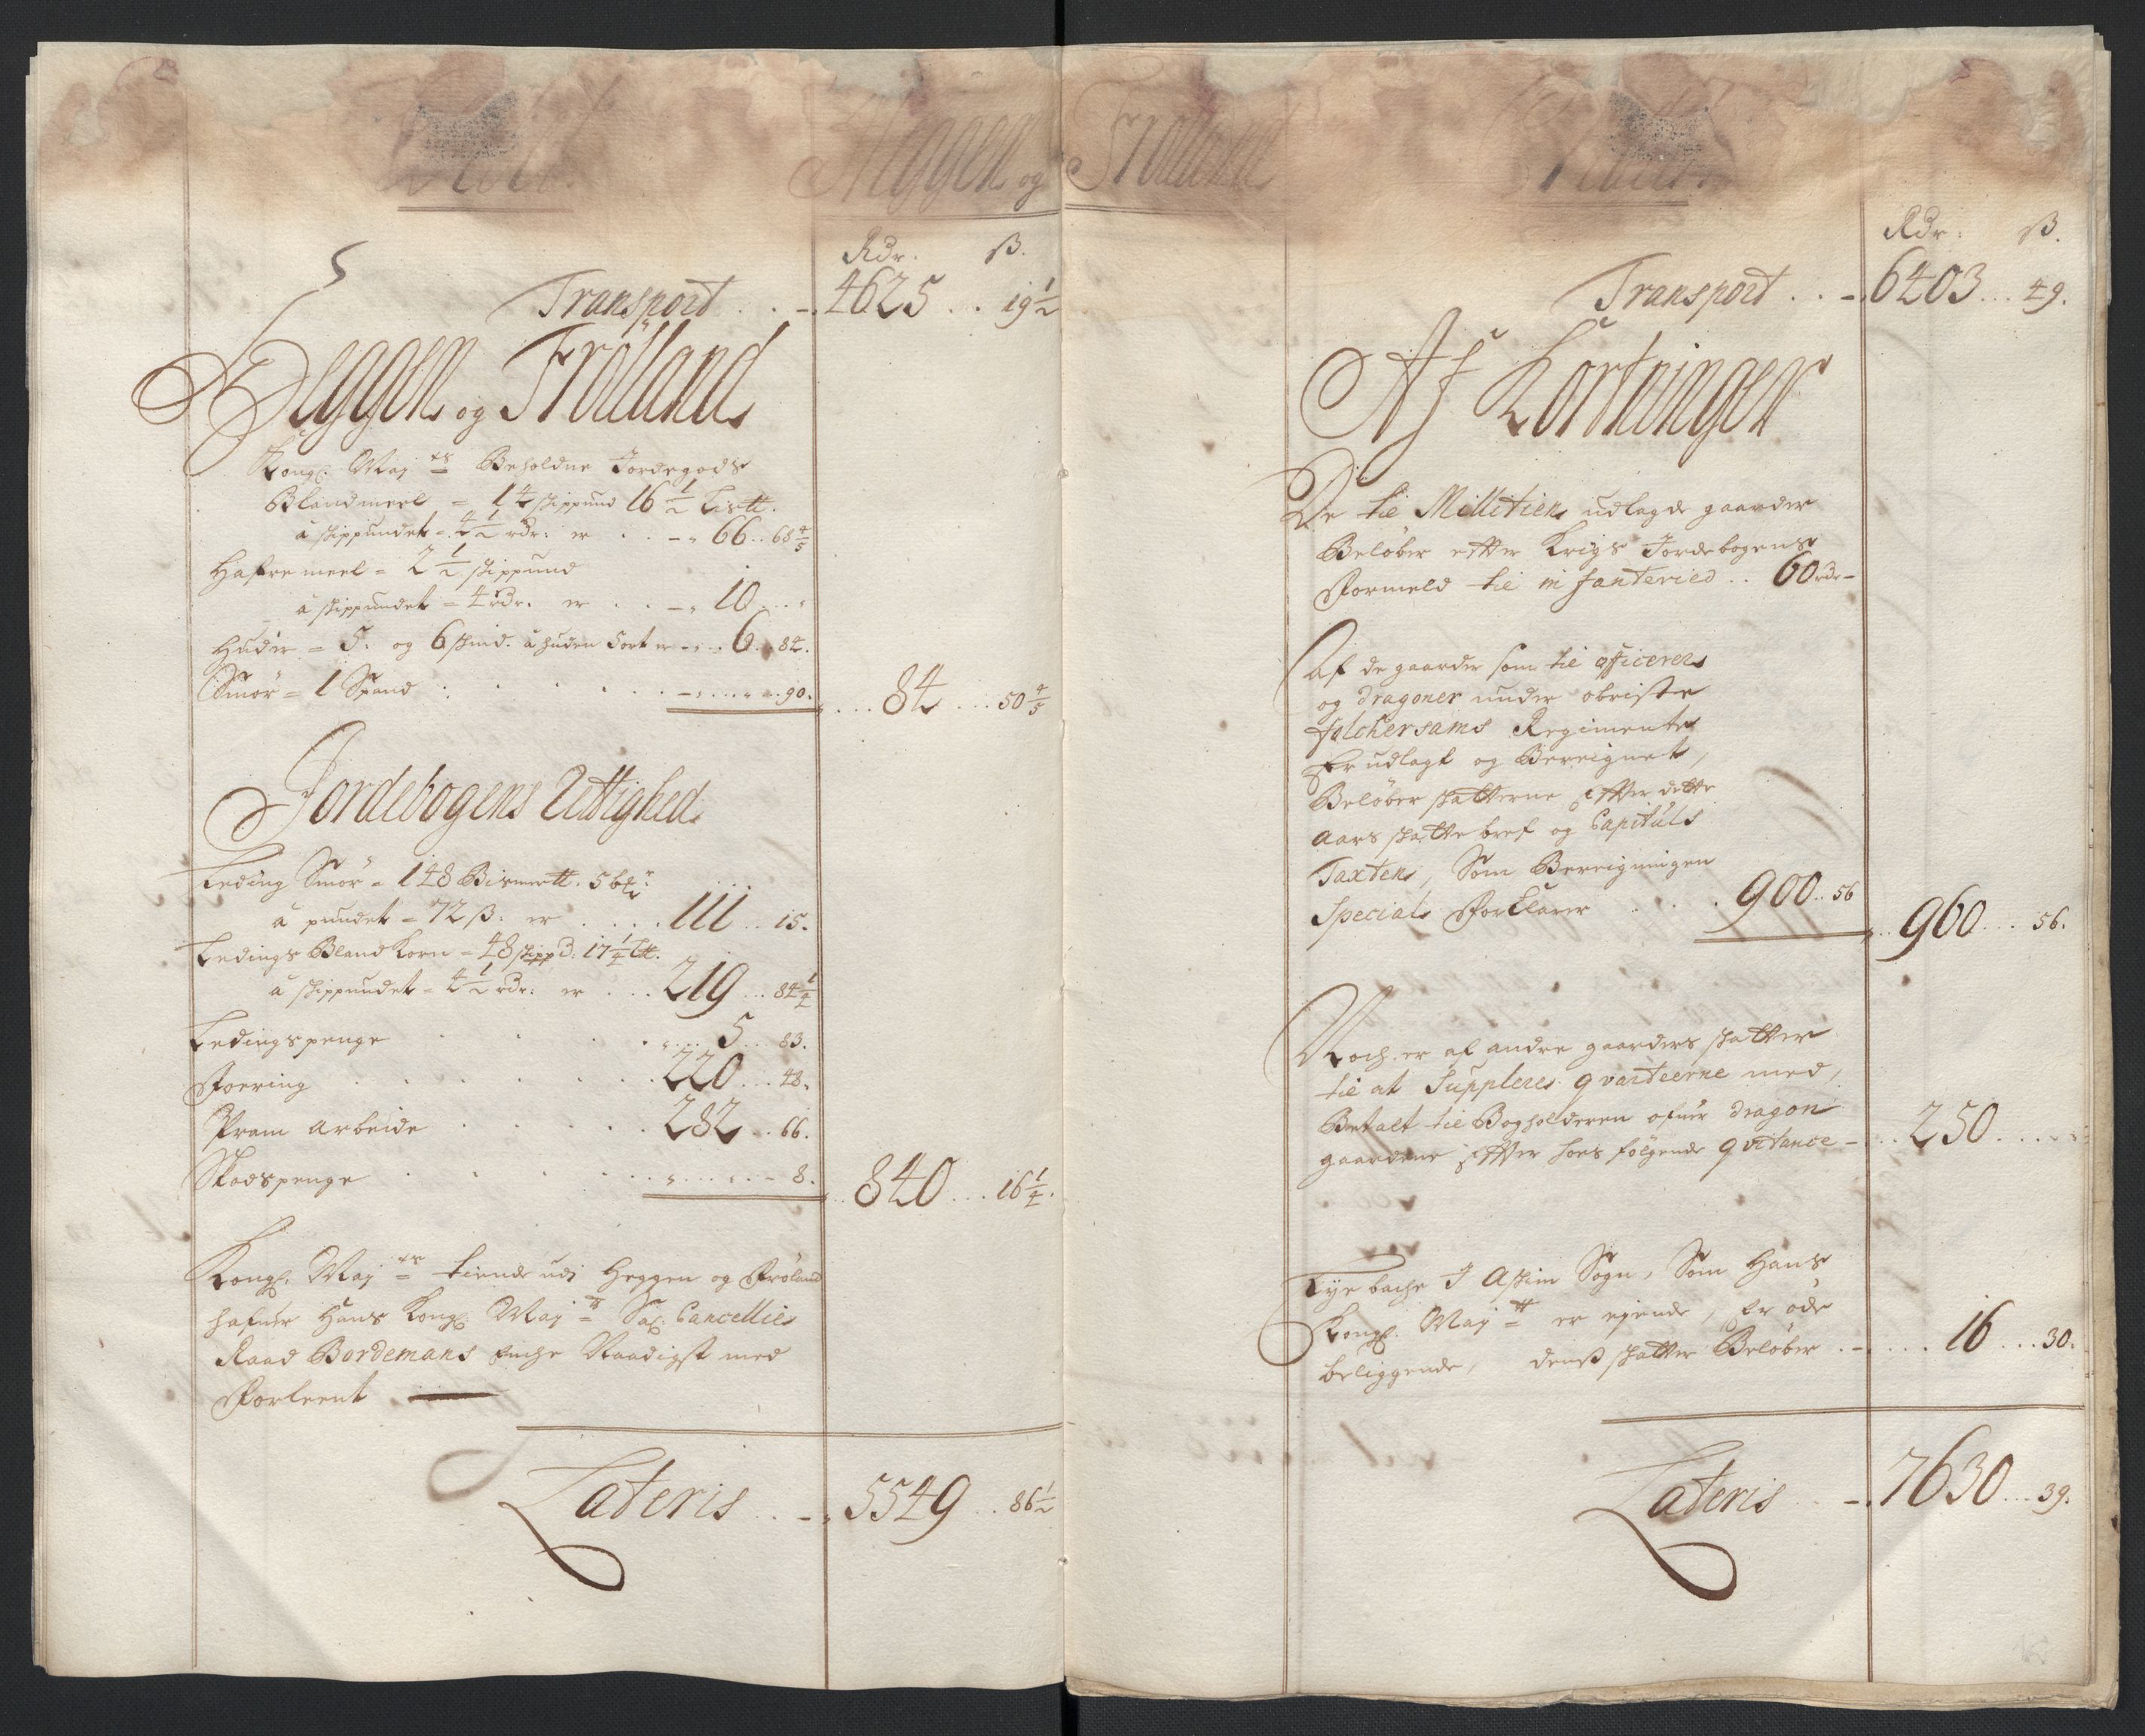 Debet.
Heggen og Frölland
Credit
Rdr. ß.
Transport . . 4625 . . 19½
Heggen og Frölland
Kongl. Maj ts Beholdne Jordegods
Blandmeel = 14 skippund 16½ Lis℔.
a skippundet = 4½ rdr: er . . 66 . . 68⅘
Hafre meel = 2½ skippund
a skippundet = 4 rdr. er . . 10 . . .
Huder = 5. og 6 skind. a huden 5 ort er . . 6 . . 84.
Smör = 1 Spand : . . . . 90.
84 . . . 50⅘
Jordebogens Uttighed
Leding Smör = 148 Bismer℔. 5
a pundet = 72 ß. er . . . 111 . . 15.
Ledings Bland Korn = 48 skippd. 17¼ L℔.
a skippundet = 4½ rdr: er . . . 219 . . . 84¼
Ledingspenge . . . . 5 . . 83.
Foering . . . . . 220 . . . 48.
Pram Arbeide . . . . 282 . . 66.
Skadspenge . . . . . 8.
840 . . . 16¼.
Kongl. Maj ts tiende udj Heggen og Frölland
hafuer Hans Kongl. Maj tt Sal. Cancellies
Raad Bordemans Enche Naadigst med
Forleent
Lateris . . 5549 . . 86½
Rdr. ß.
Transport . . 6403 . . . 49.
Af Kortninger
De til Millitien udlagde gaarder
Belöber efter Krigs Jordebogens
Formeld til infanteried . . 60 rdr
Af de gaarder som til officerer
og dragoner under obriste
folchersams Regimente
Er udlagt og Bereignet,
Belöber skatterne efter dette
aars skatte bref og Capituls
Taxten, Som Bereigningen
Special Forklarer . . . 900 . . 56
960 . . . 56.
Noch er af andre gaarders skatter
til at Supplere qvarteerne med,
Betalt til Bogholderen ofuer dragon
gaardene efter hoes följende qvitance . . 250 . . . .
Tye bache I Askim Sogn, Som Hans
Kongl. Maj tt er ejende, Er öde
beliggende, denß skatter Belöber . . . 16 . . . 30.
Lateris . . 7630 . . . 39.